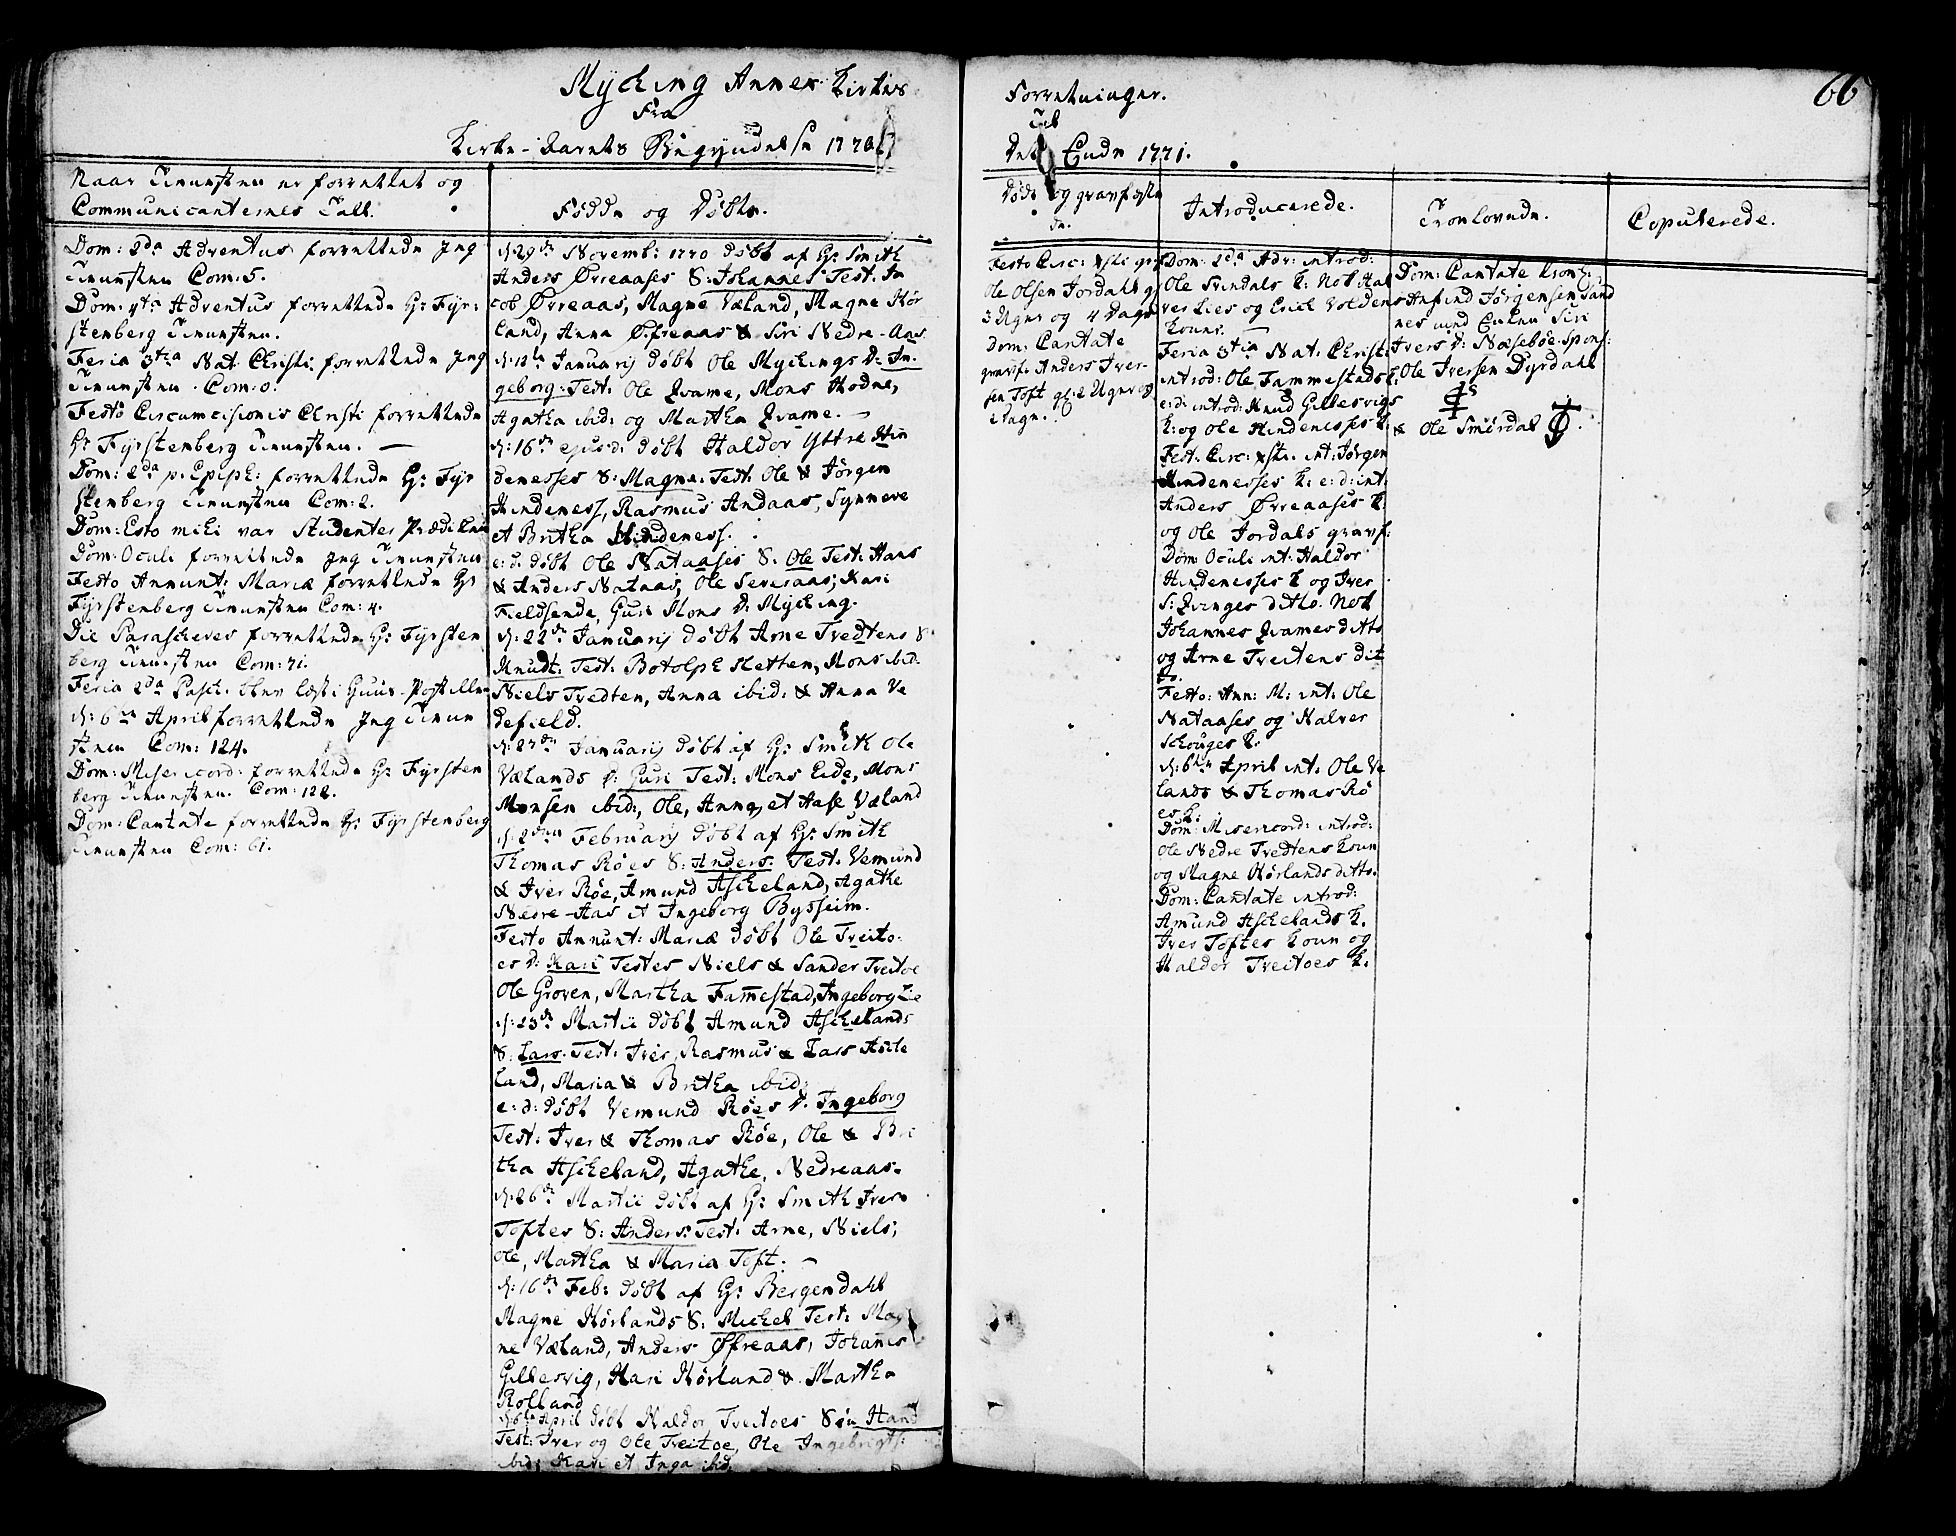 Myching Annex Kirkes
Forretninger.
66
Fra
Til
Kirke-Aarets Begyndelse 1770
Dets Ende 1771.
Naar Tienesten er forrettet og
Communicanternes Tall.
Fødde og Døbte.
Døde og gravfæste
Introducerede.
Trolovede.
Copulerede.
Dom: 2da Adventus forrettede Jeg
Tienesten Com: 5.
Dom: 4ta Adventus forrettede Hr: Fyr:
stenberg Tienesten.
Feria 3tia Nat. Christi forrettede Jeg
Tienesten. Com: 0.
Festo Circumcisionis Christi forrettede
Hr Fyrstenberg Tienesten. —
Dom: 2da p. Epiph: forrettede Hr: Fyr
stenberg Tienesten Com: 2.
Dom: Esto mihi var Studenter Prædiken
Dom: Oculi forrettede Jeg Tienesten
Festo Annunt: Mariæ forrettede Hr
Fyrstenberg Tienesten Com: 4.
Die Parasceves forrettede Hr: Fyrsten
berg Tienesten Com: 71.
Feria 2da Pasch. blev læst i Huus-Postillen
d: 6te April forrettede Jeg Tiene
sten Com: 124.
Dom: Misericord: forrettede Hr Fyrsten
berg Tienesten. Com: 128.
Dom: Cantate forrettede Hr: Fyrstenberg
Tienesten Com: 61.
d: 29de Novemb: 1770 døbt af Hr: Smith
Anders Øvreaases S: Johannes Test. Ja
cob Øvreaas, Magne Væland, Magne Hør
land, Anna Øfreaas & Siri Nedre-Aas.
d: 12te Januarij døbt Ole Mychings D: In
geborg: Test: Ole Qvame, Mons Hodne,
Agatha ibid: og Martha Qvame. —
d: 16de ejusd: døbt Haldor Yttre Hin
denesses S: Magne. Test: Ole & Jørgen
Hindeness, Rasmus Andaas, Synneve
et Britha Hindeness.
e: d: døbt Ole Nataases S. Ole Test: Hans
& Anders Nataas, Ole Severaas, Kari
Fieldsende, Guri Mons D: Myching.
d: 22de Januarij døbt Arne Tvedtens S
Knudt: Test: Botolph Sletten, Mons ibid.
Niels Tvedten, Anna ibid: & Anna Ve
defield.
d: 27de Januarij døbt af Hr: Smith Ole
Vælands D: Guri Test: Mons Eide, Mons
Monsen ibid:, Ole, Anna, et Aase Væland
d: 2den Februarij døbt af Hr: Smith
Thomas Røes S: Anders. Test: Vemund
& Iver Røe, Amund Ascheland, Agathe
Nedre-Aas et Ingeborg Bysseim.
Festo Annunt: Mariæ døbt Ole Tveito:
es D: Kari Testes Niels & Sander Tveitoe
Ole Groven, Martha Fam̄estad, Ingeborg Lie
d: 23de Martii døbt Amund Aschelands
S: Lars. Test: Iver, Rasmus & Lars Asche
land, Maria & Britha ibid:
e: d: døbt Vemund Røes D. Ingeborg
Test: Iver & Thomas Røe, Ole & Bri
tha Ascheland, Agathe, Nedreaas.
d: 26de Martii døbt af Hr: Smith Iver
Toftes S: Anders. Test: Arne, Niels,
Ole, Martha & Maria Toft. —
d: 16de Feb: døbt af Hr: Bergendahl
Magne Hørlands S: Michel Test: Mag
ne Væland, Anders Øfreaas, Johan̄es
Gillesvig, Kari Hørland & Martha
Rolland
d: 6te April døbt Haldor Tveitoes Søn Hand
Test: Iver og Ole Tveitoe, Ole Ingebrigts:
ibid: Kari et Inga ibid.
Festo Circ: Xsti gr:
Ole Olsen Jordahl gl:
3 Uger og 4 Dage
Dom: Cantate
gravf. Anders Iver-
sen Toft gl: 2 Uger og
1 Dage.
Dom: 2da Adv: introd:
Ole Svindals K: Not Hal
vor Lies og Erich Voldens
Koner. —
Feria 3tia Nat. Christi
introd: Ole Fammestads K.
e: d: introd: Knud Gillesvigs
K: og Ole Hindenesses K.
Fest: Circ: Xsti. int: Jørgen
Hindenesses K: e: d: int:
Anders Øvreaases K.
og Ole Jordals gravf:
Dom: Oculi int: Haldor
Hindenesses K og Iver
S: Qvinges ditto. Not
Johannes Qvames ditto
og Arne Tveitens dit
to.
Festo: Ann: M: int: Ole
Nataases og Halver
Schouges K.
d: 6te April int: Ole Ve
lands & Thomas Rø
es K:
Dom: Misericord: introd:
Ole Nedre Tvedtens Kone
og Magne Hørlands ditto.
Dom: Cantate introd:
Amund Aschelands K.
Iver Toftes Kone og
Haldor Tveitoes K.
Dom: Cantate
Anfind Jørgensen Sand
nes med Enken Siri
Ivers D: Næsebøe. Spons:
Ole Iversen Dyrdahl
& Ole Smørdal